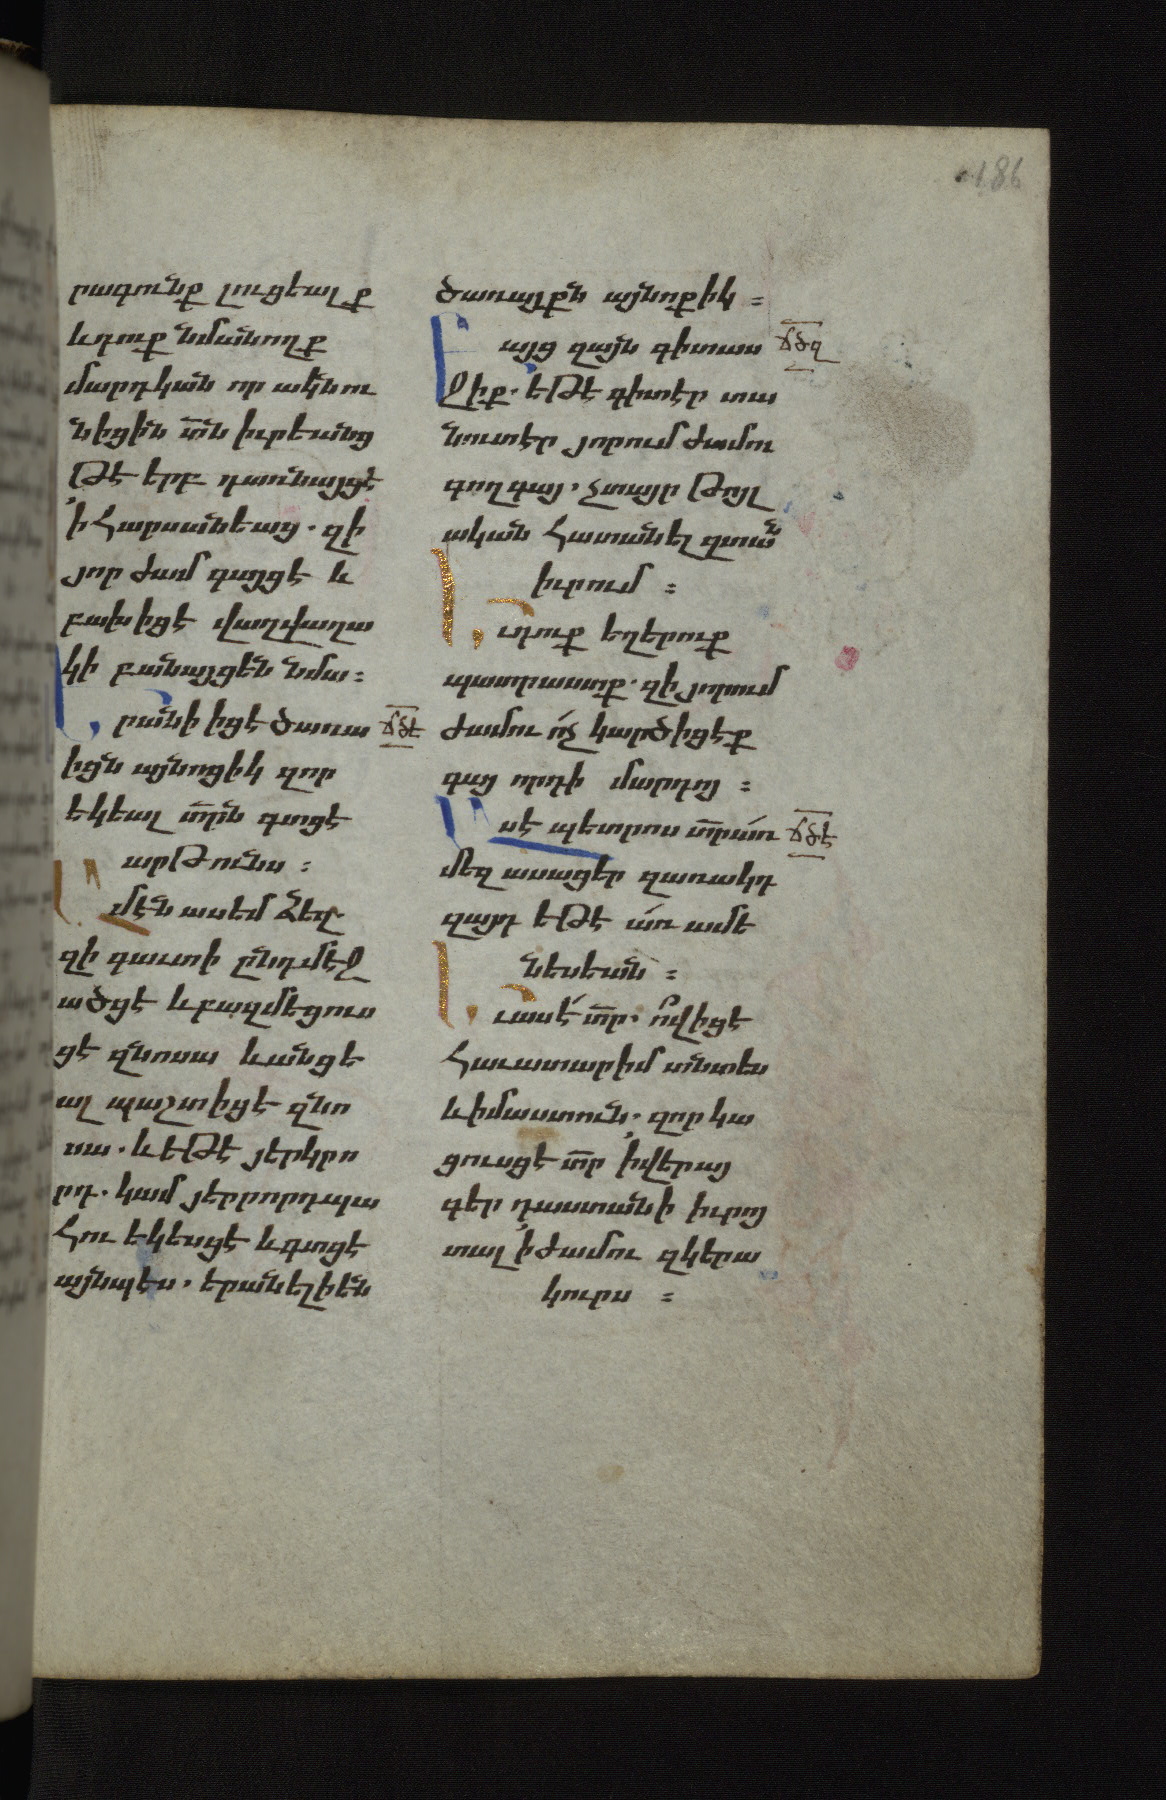 186
րագունք լուցեալք
և դուք նմանողք
մարդկան որ ակնու
նիցին տն իւրեանց
թէ երբ դառնայցէ
ի հարսանեաց. զի
յոր ժամ գայցէ և
բախիցէ վաղվաղա
կի բանայցեն նմա։
Երանի իցէ ծառա ճծե
իցն այնոցիկ զոր
եկեալ տրն գտցէ
արթունս։
Ամէն ասեմ ձեզ
զի գաւտի ընդմէջ
ածցէ և բազմեցուս
ցէ զնոսա և անցե
ալ պաշտիցէ զնո
սա. և եթէ յերկրո
րդ. կամ յերրորդ պա
հու եկեսցէ և գտցէ
այնպէս. երանելի են
ծառայքն այնոքիկ։
Բայց զայն գիտաս ճծզ
ջիք. եթէ գիտէր տա
նուտէր յորում ժամու
գող գայ. չտայր թոյլ
ական հատանել զտան
իւրում։
Եւ դուք եղերուք
պատրաստք. զի յորում
ժամու ոչ կարծիցէք
գայ որդի մարդոյ։
Ասէ պետրոս տր առ ճծէ
մեզ ասացեր զառակդ
զայդ եթէ առ ամե
նեսեան։
Եւ ասէ տր. ովիցէ
հաւատարիմ տնտես
և իմաստուն. զոր կա
ցուսցէ տր ի վերայ
գեր դաստանի իւրոյ
տալ ի ժամու զկերա
կուրս։